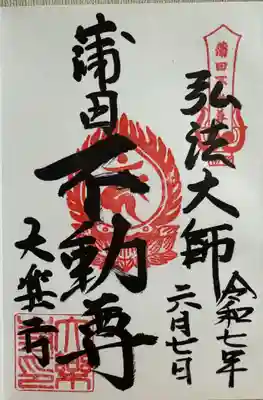 弘法大師
令和七年
六月七日
蒲田
不動尊
大楽寺
蒲田不動尊